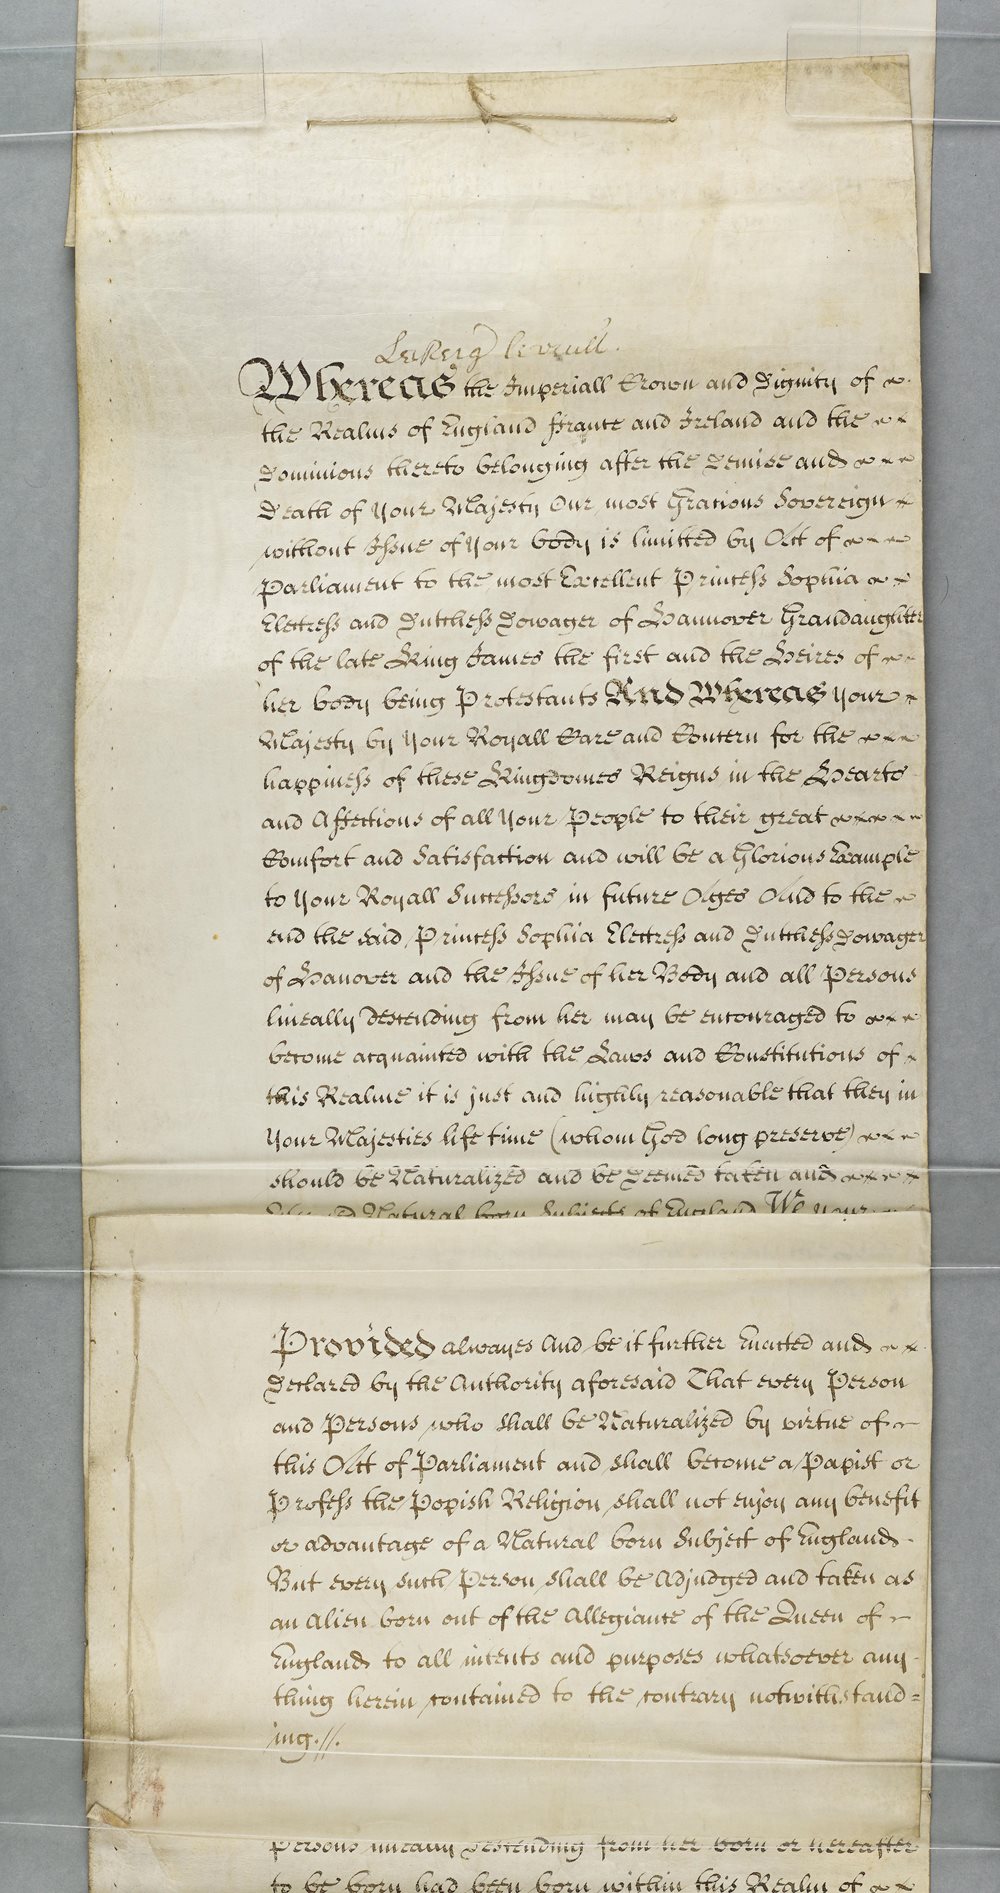 Le Reigne le veult.
Whereas the Imperiall Crown and Dignity of
the Realms of England ffrance and Ireland and the
Dominions thereto belonging after the Demise and
Death of Your Majesty Our most Gracious Sovereign
without Issue of Your body is limitted by Act of
Parliament to the most Excellent Princess Sophia
Electress and Dutchess Dowager of Hannover Grandaughter
of the late King James the first and the Heires of
her body being Protestants And Whereas Your
Majesty by Your Royall Care and Concern for the
happiness of these Kingdomes Reigns in the Hearts
and Affections of all Your People to their great
Comfort and Satisfaction and will be a Glorious Example
to Your Royall Successors in future Ages And to the
end the said Princess Sophia Electress and Dutchess Dowager
of Hanover and the Issue of her Body and all Persons
lineally descending from her may be encouraged to
become acquainted with the Laws and Constitutions of
this Realme it is just and highly reasonable that they in
Your Majesties life time (whom God long preserve)
should be Naturalized and be Deemed taken and
Natural born Subjects of England We Your
Provided alwayes And be it further Enacted and
Declared by the Authority aforesaid That every Person
and Persons who shall be Naturalized by virtue of
this Act of Parliament and shall become a Papist or
Profess the Popish Religion shall not enjoy any benefit
or advantage of a Natural born Subject of England
But every such Person shall be Adjudged and taken as
an Alien born out of the Allegiance of the Queen of
England to all intents and purposes whatsoever any
thing herein contained to the contrary notwithstand=
ing.//.
Persons lineally descending from her born or hereafter
to be born had been born within this Realm of